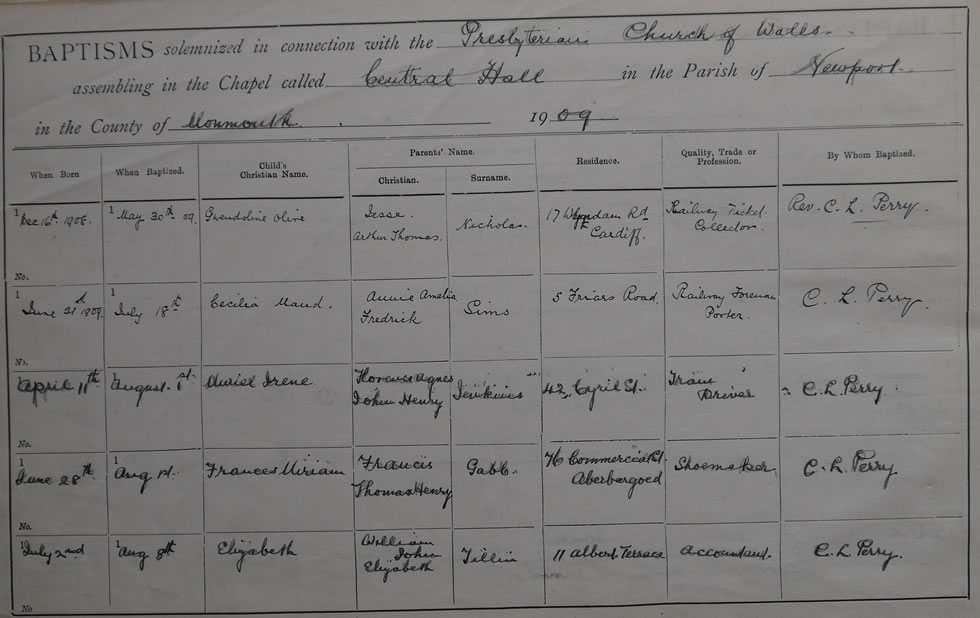 BAPTISMS solemnized in connection with the Presbyterian Church of Wales.
assembling in the Chapel called Central Hall in the Parish of Newport
in the County of Monmouth. 1909
When Born When Baptized. Child's Christian Name. Parents' Name. Christian. Surname. Residence. Quality, Trade or Profession. By Whom Baptized.
1 Dec 16th 1908. 1 May 30th 09. Gwendoline Olive Jesse. Nicholas. 17 Wyndam Rd Railway Ticket Rev. C. L. Perry.
Arthur Thomas. Cardiff. Collector.
No.
1 June 21st 1909. 1 July 18th Cecilia Maud. Annie Amelia Sims 5 Friars Road. Railway Foreman C. L. Perry.
Fredrick Porter.
No.
April 11th 1 August 1st. Muriel Irene Florence Agnes Jenkins 42, Cyril St. Tram C. L. Perry
John Henry Driver
No.
1 June 28th 1 Aug 1st. Frances Miriam Francis Gabb. 76 Commercial St. Shoemaker C. L. Perry
Thomas Henry Aberbargoed
No.
July 2nd 1 Aug 8th Elizabeth William 11 Albert Terrace Accountant. C. L. Perry.
John
Elizabeth
No